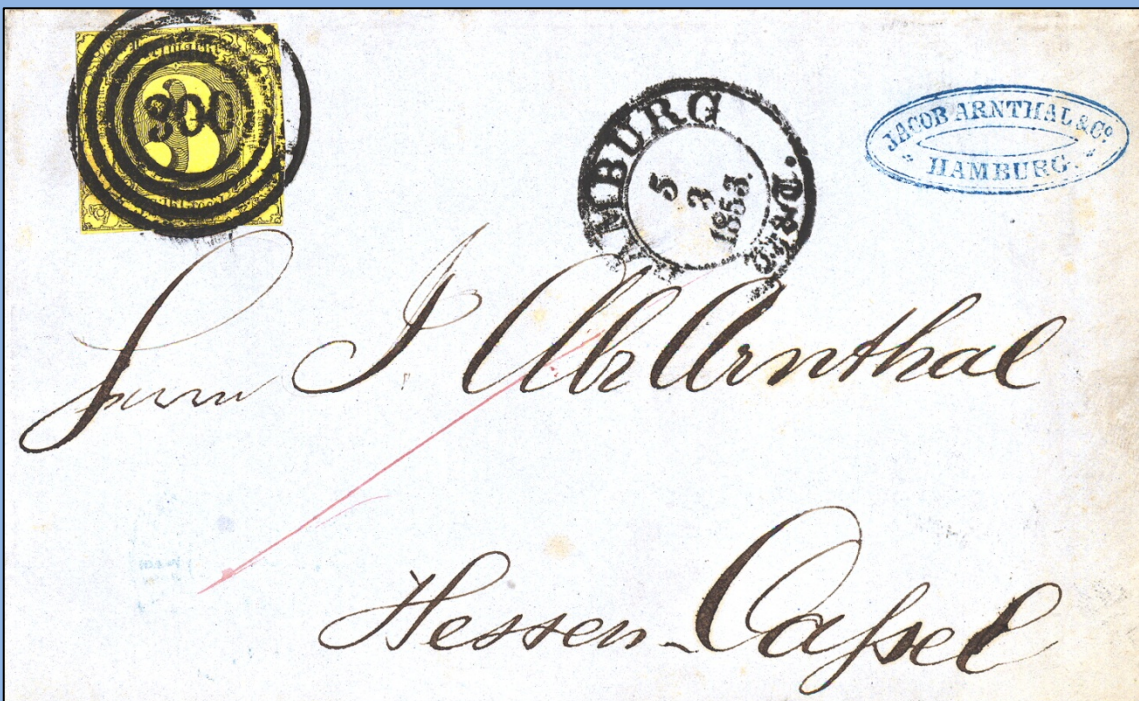 300
3
HAMBURG
5
3
1853.
JACOB ARNTHAL & Co.
HAMBURG.
Herrn J. Ab Arnthal
Hessen-Cassel